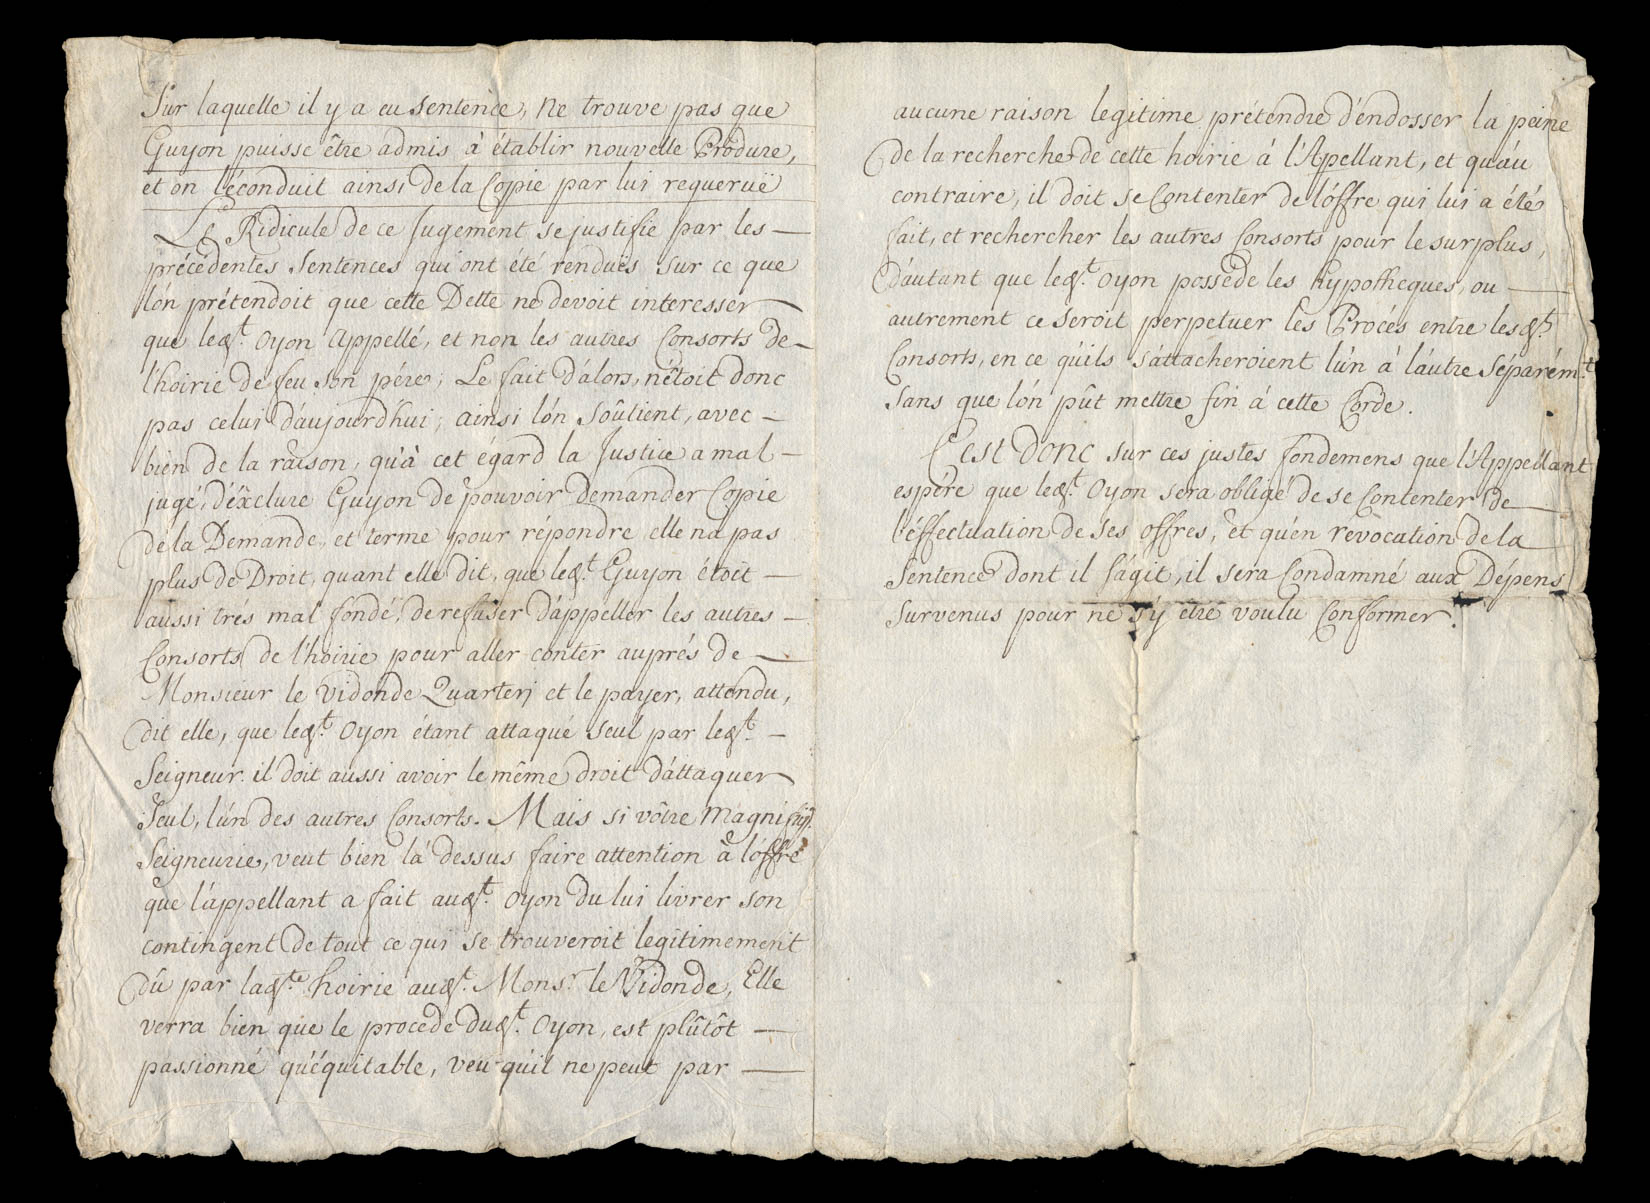 Sur laquelle il y a eu sentence, ne trouve pas que
Guyon puisse être admis à établir nouvelle Produre,
et on l'éconduit ainsi de la Copie par lui requeruë
Le Ridicule de ce Jugement se justifie par les —
précédentes Sentences qui ont été renduës sur ce que
l'ón prétendoit que cette Dette ne devoit interesser
que led.t Oyon Appellé, et non les autres Consorts de —
l'hoirie de feu son pére; Le fait d'alors, n'étoit donc
pas celui d'aujourd'hui; ainsi l'ón soûtient, avec —
bien de la raison, qu'à cet égard la Justice a mal —
jugé, d'éxclure Guyon de pouvoir demander Copie
de la Demande, et terme pour répondre, elle na pas
plus de Droit, quant elle dit, que led.t Guyon étoit —
aussi trés mal fondé, de refuser d'appeller les autres —
Consorts de l'hoirie pour aller conter auprés de —
Monsieur le Vidonde Quarterj et le payer, attendu,
dit elle, que led.t Oyon étant attaqué seul par led.t —
Seigneur. il doit aussi avoir le même droit d'attaquer
Seul, l'ún des autres Consorts. Mais si vôtre Magnifiq.
Seigneurie, veut bien là dessus faire attention à l'óffre
que l'áppellant a fait aud.t Oyon du lui livrer son
contingent de tout ce qui se trouveroit legitimement
dû par lad.te hoirie aud.t Mons.r le Vidonde, Elle
verra bien que le procede dud.t Oyon, est plûtôt —
passionné qu'équitable, veu qu'il ne peut par —
aucune raison legitime prétendre d'éndosser la peine
de la recherche de cette hoirie á l'Apellant, et qu'áu
contraire, il doit se Contenter de l'óffre qui lui a été
fait, et rechercher les autres Consorts pour le surplus,
d'áutant que led.t Oyon posséde les hypotheques, ou —
autrement ce seroit perpetuer les Procés entre lesd.ts
Consorts, en ce qu'ils s'áttacheroient l'ún à l'áutre Séparém.t
Sans que l'ón pût mettre fin á cette Corde.
C'est donc sur ces justes fondemens que l'Appellant
espére que led.t Oyon sera obligé de se Contenter de —
l'éffectuation de ses offres, et qu'en revocation de la
Sentence dont il s'ágit, il sera Condamné aux Dépens
Survenus pour ne s'y etre voulu Conformer.